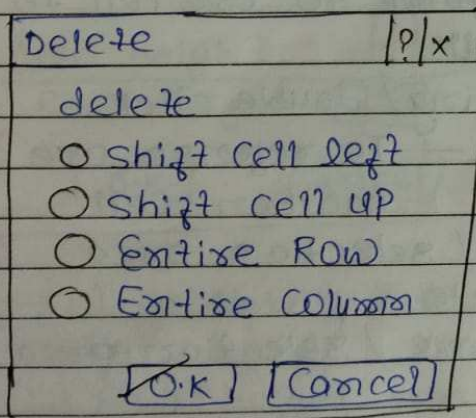 Delete |?|x
delete
○ Shift Cell left
○ Shift cell up
○ Entire Row
○ Entire Column
O.K Cancel